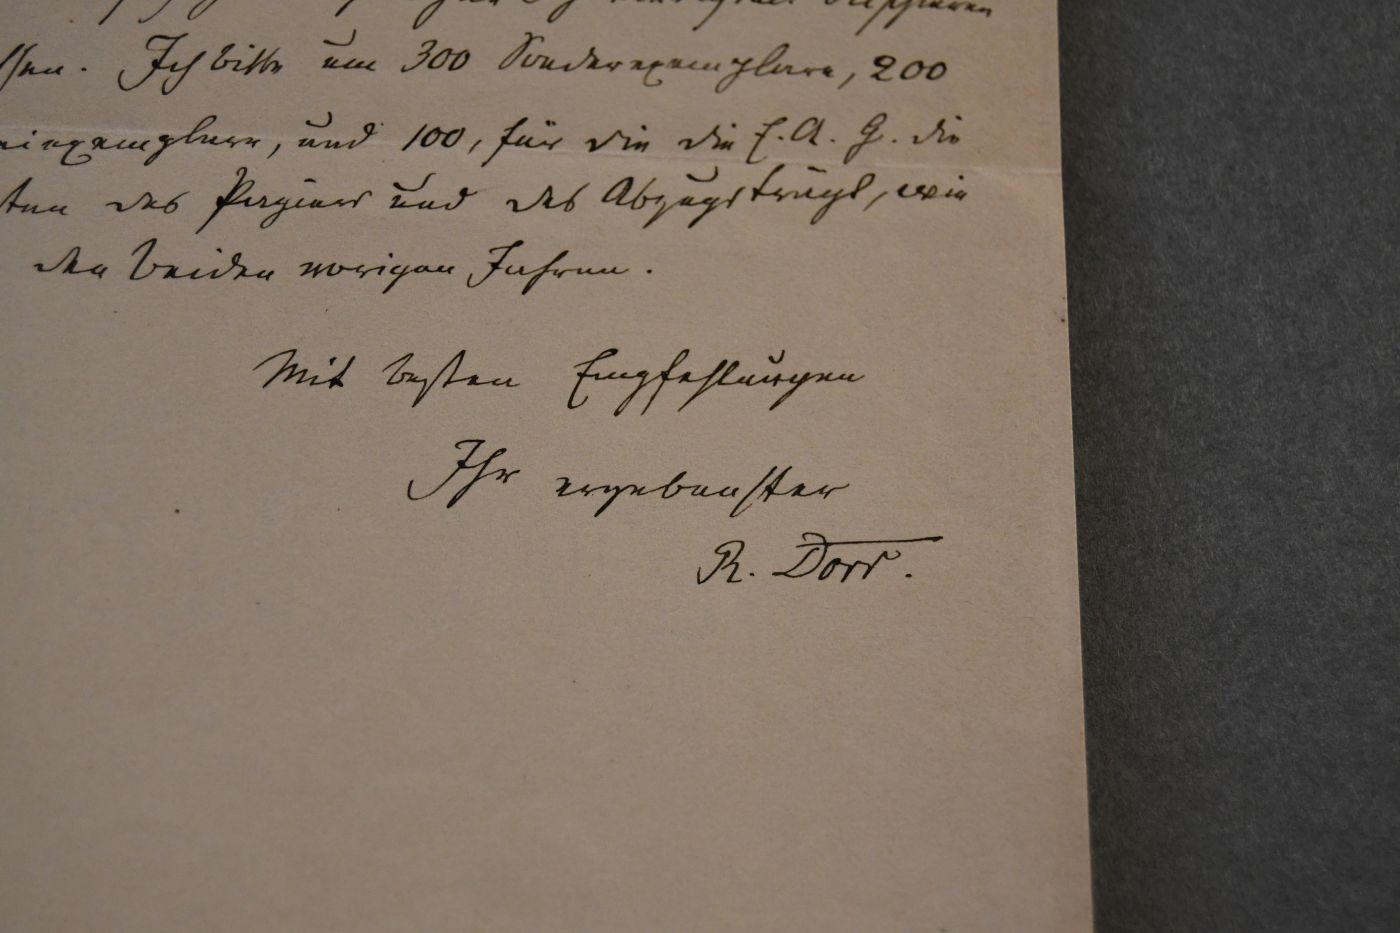 ssen. Ich bitte um 300 Sonderexemplare, 200
eiexemplare, und 100, für die die E. A. G. die
sten des Papiers und des Abzugs trägt, wie
den beiden vorigen Jahren.
Mit besten Empfehlungen
Ihr ergebenster
R. Dorr.